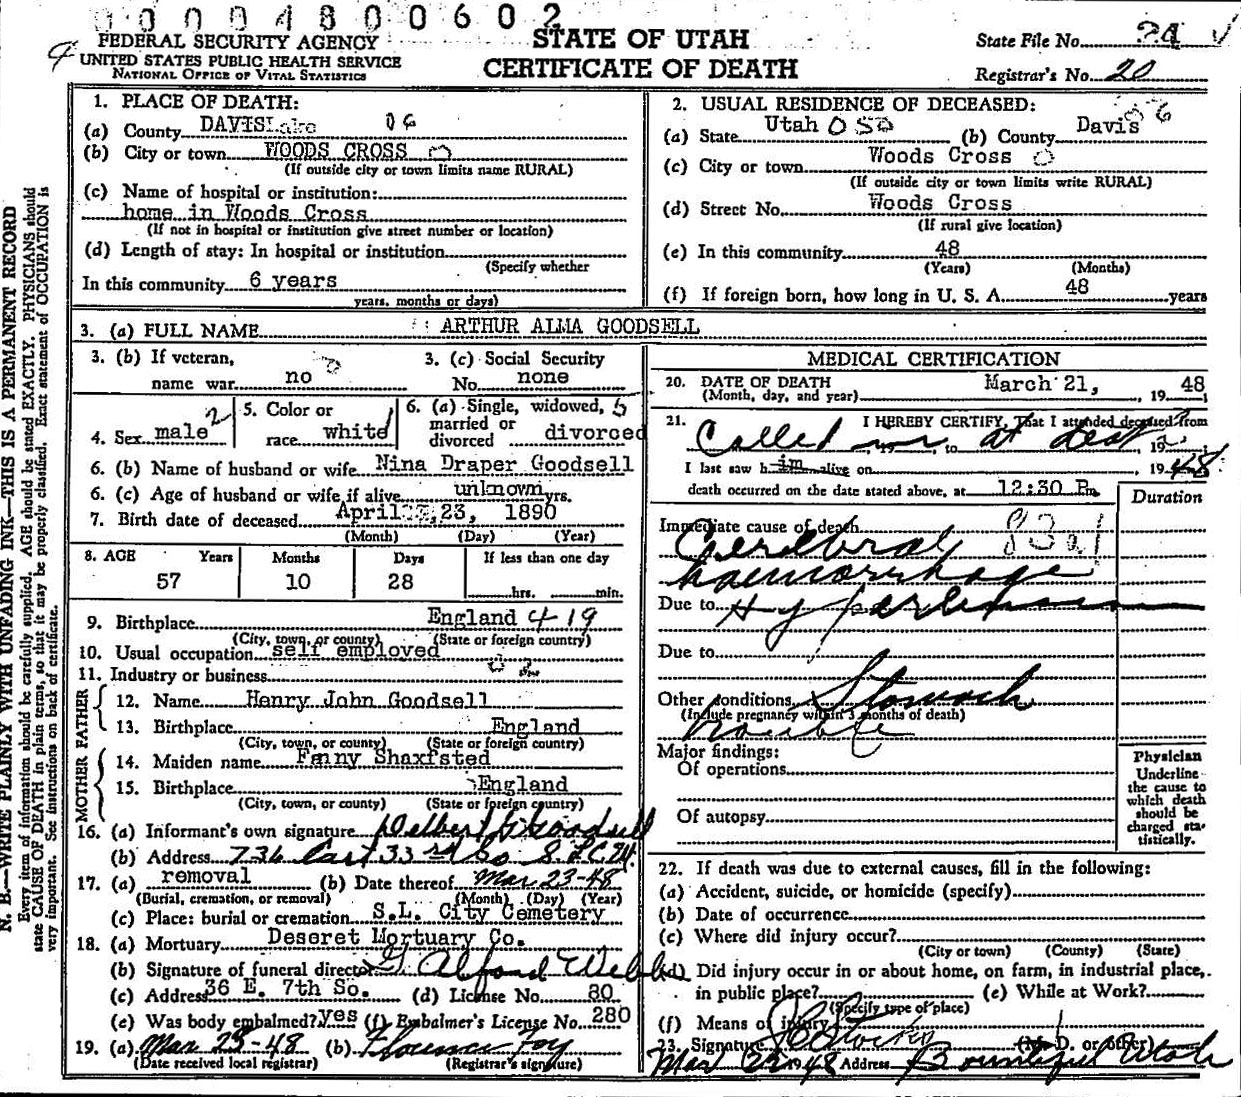 0004800602
FEDERAL SECURITY AGENCY
UNITED STATES PUBLIC HEALTH SERVICE
NATIONAL OFFICE OF VITAL STATISTICS
STATE OF UTAH
CERTIFICATE OF DEATH
State File No.
Registrar's No. 20
N. B.—WRITE PLAINLY WITH UNFADING INK—THIS IS A PERMANENT RECORD
Every item of information should be carefully supplied. AGE should be stated EXACTLY. PHYSICIANS should
state CAUSE OF DEATH in plain terms, so that it may be properly classified. Exact statement of OCCUPATION is
very important. See instructions on back of certificate.
1. PLACE OF DEATH:
(a) County DAVIS Lake 06
(b) City or town WOODS CROSS
(If outside city or town limits name RURAL)
(c) Name of hospital or institution:
home in Woods Cross
(If not in hospital or institution give street number or location)
(d) Length of stay: In hospital or institution
(Specify whether
In this community 6 years
years, months or days)
2. USUAL RESIDENCE OF DECEASED:
(a) State Utah (b) County Davis 06
(c) City or town Woods Cross
(If outside city or town limits write RURAL)
(d) Street No. Woods Cross
(If rural give location)
(e) In this community 48
(Years) (Months)
(f) If foreign born, how long in U. S. A. 48 years
3. (a) FULL NAME ARTHUR ALMA GOODSELL
3. (b) If veteran,
name war no
3. (c) Social Security
No. none
4. Sex male 2
5. Color or
race white 1
6. (a) Single, widowed, 5
married or
divorced divorced
6. (b) Name of husband or wife Nina Draper Goodsell
6. (c) Age of husband or wife if alive unknown yrs.
7. Birth date of deceased April 23, 1890
(Month) (Day) (Year)
8. AGE Years Months Days If less than one day
57 10 28 hrs. min.
9. Birthplace England 4-19
(City, town, or county) (State or foreign country)
10. Usual occupation self employed
11. Industry or business
FATHER
12. Name Henry John Goodsell
13. Birthplace England
(City, town, or county) (State or foreign country)
MOTHER
14. Maiden name Fanny Shaxfsted
15. Birthplace England
(City, town, or county) (State or foreign country)
16. (a) Informant's own signature Delbert G Goodsell
(b) Address 736 East 33rd So S.L.C. U.
17. (a) removal (b) Date thereof Mar 23-48
(Burial, cremation, or removal) (Month) (Day) (Year)
(c) Place: burial or cremation S.L. City Cemetery
18. (a) Mortuary Deseret Mortuary Co.
(b) Signature of funeral director G. Alford Webb
(c) Address 36 E. 7th So. (d) License No. 80
(e) Was body embalmed? yes (f) Embalmer's License No. 280
19. (a) Mar 23-48 (b) Florence Foy
(Date received local registrar) (Registrar's signature)
MEDICAL CERTIFICATION
20. DATE OF DEATH March 21, 1948
(Month, day, and year)
21. I HEREBY CERTIFY, That I attended deceased from
Called at death
I last saw him alive on 1948
death occurred on the date stated above, at 12:30 Pm
Duration
Immediate cause of death 83a1
Cerebral
haemorrhage
Due to Hypertension
Due to
Other conditions Stomach
(Include pregnancy within 3 months of death)
trouble
Major findings:
Of operations
Of autopsy
Physician
Underline
the cause to
which death
should be
charged sta-
tistically.
22. If death was due to external causes, fill in the following:
(a) Accident, suicide, or homicide (specify)
(b) Date of occurrence
(c) Where did injury occur?
(City or town) (County) (State)
(d) Did injury occur in or about home, on farm, in industrial place,
in public place? (e) While at Work?
(Specify type of place)
(f) Means of injury
23. Signature (M. D. or other)
Mar 22 1948 Address Bountiful Utah